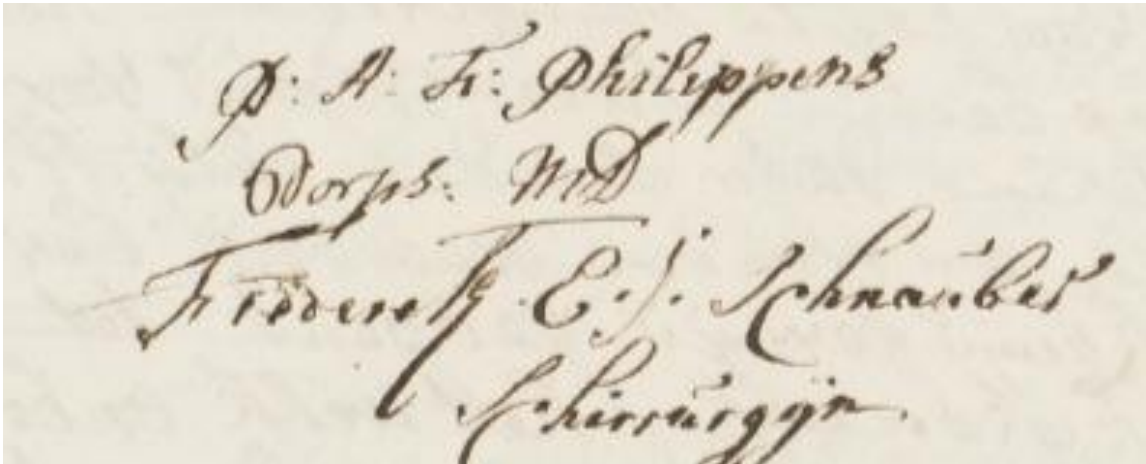 P: A: F: Philippens
Dorps: MD
Frederek E. J. Schnauber
Chirrurgijn